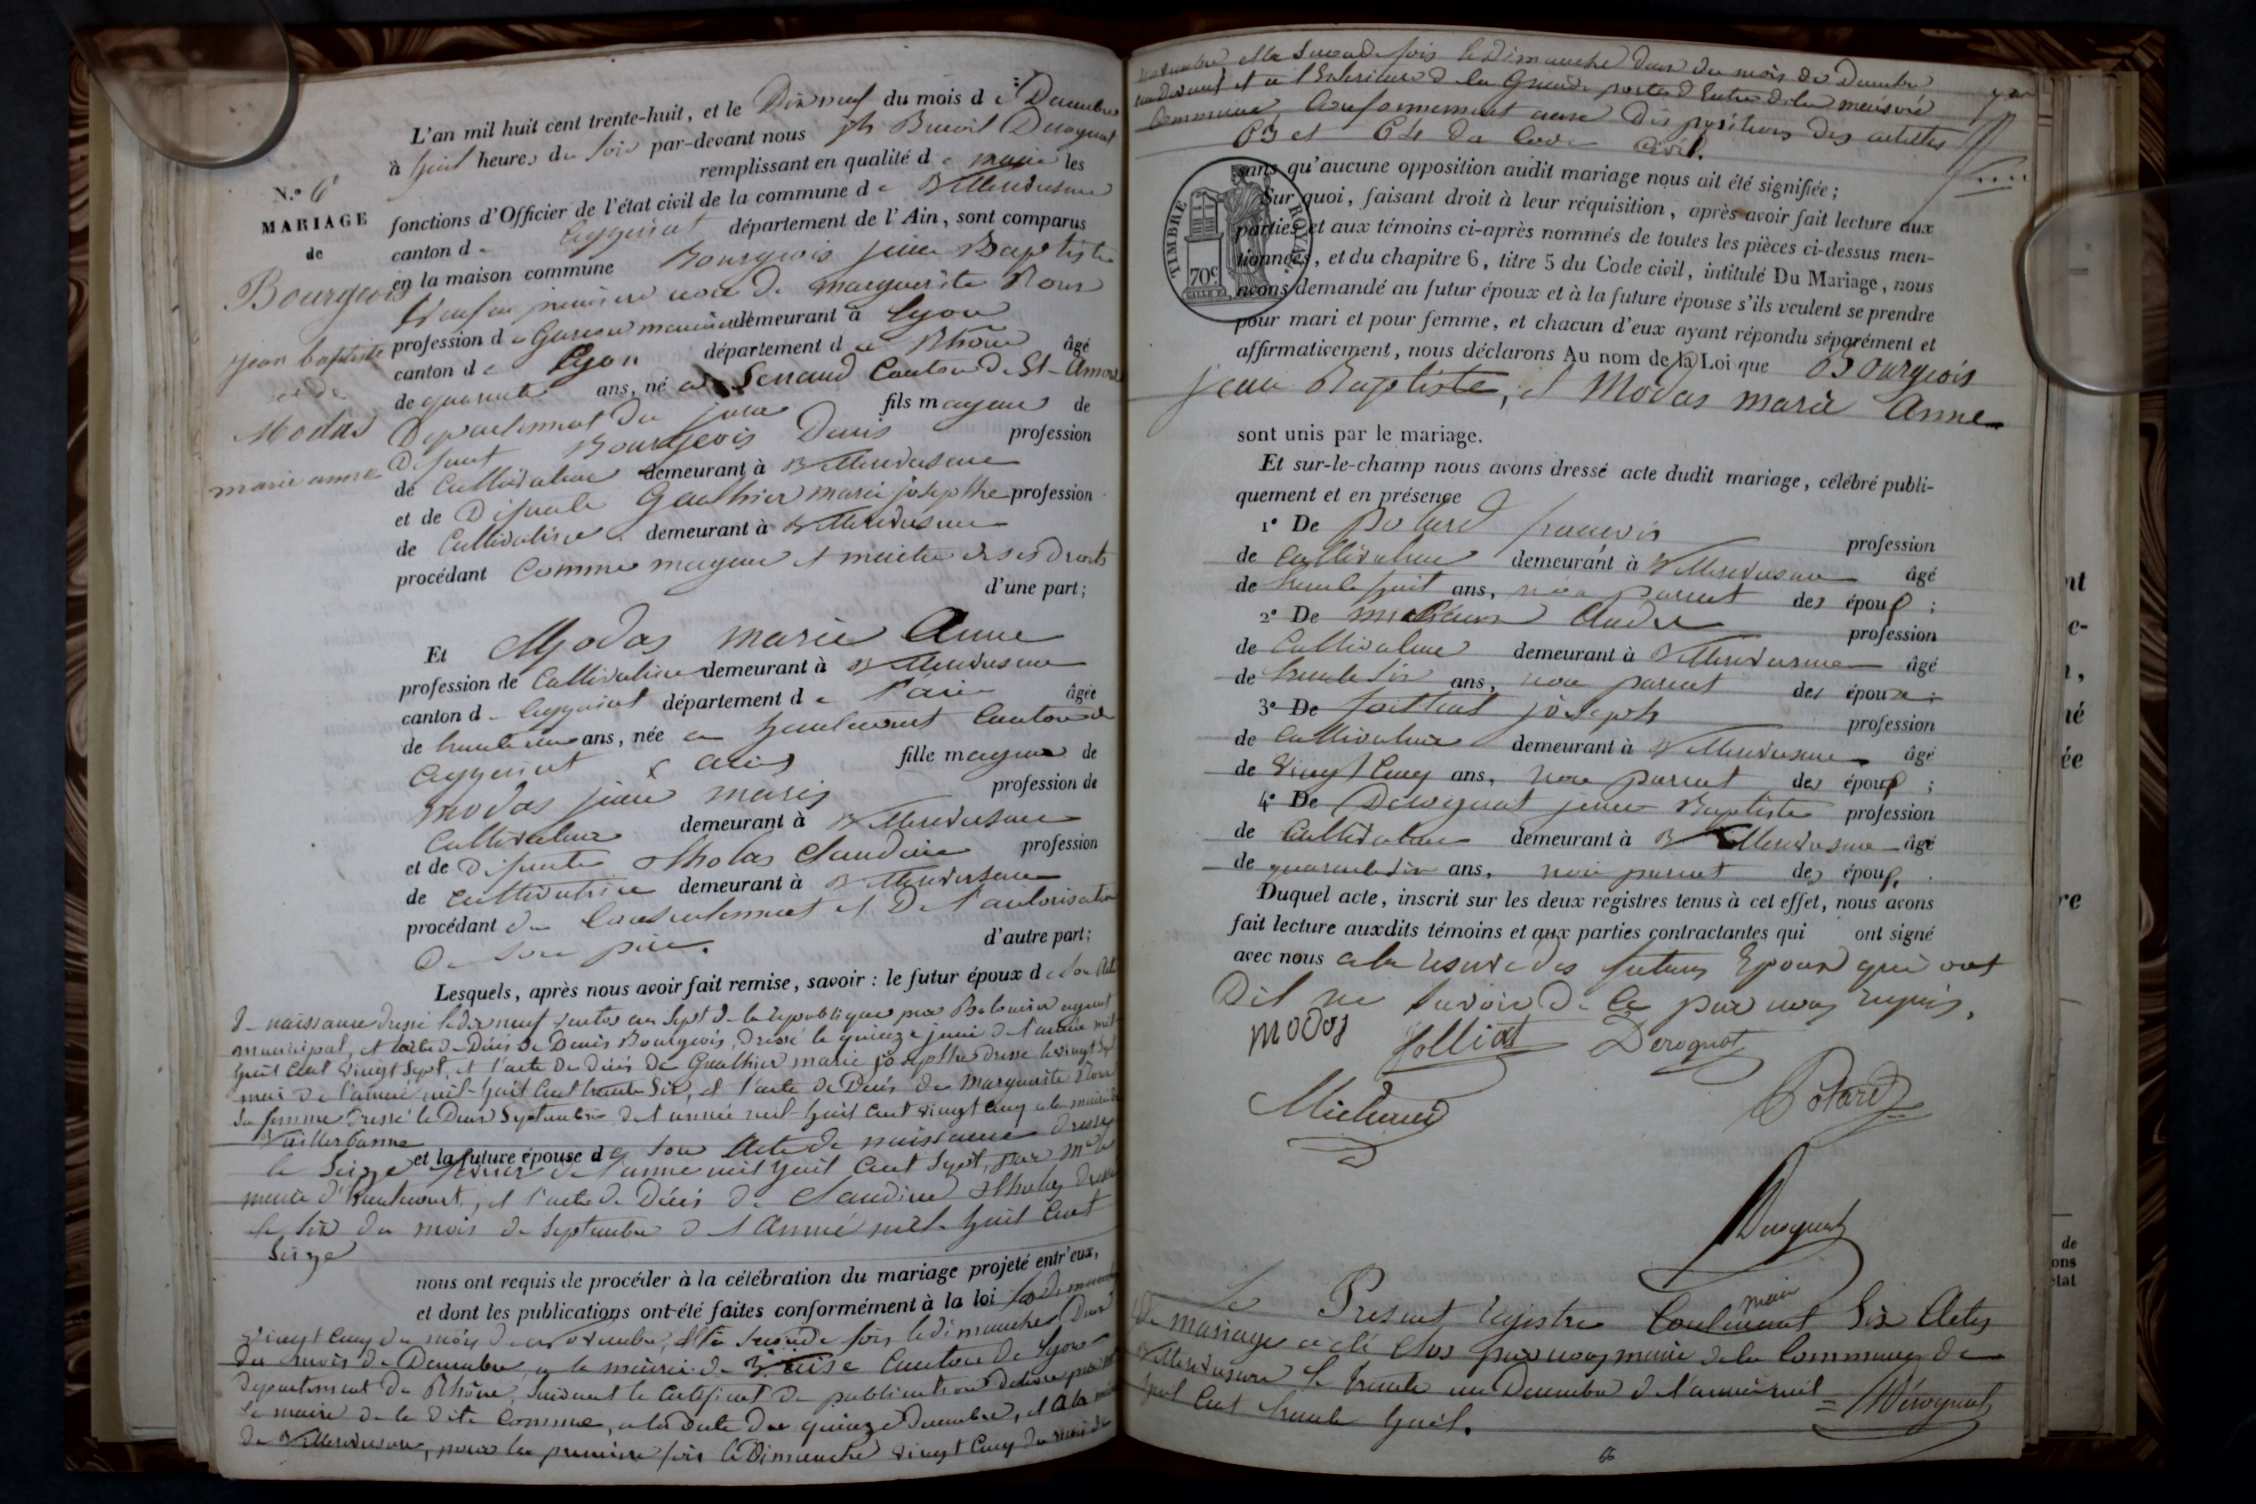 L'an mil huit cent trente-huit, et le Dix neuf du mois d e Decembre
à huit heures du soir par-devant nous jh Benoit Derognat
remplissant en qualité d e maire les
N.º 6
fonctions d'Officier de l'état civil de la commune d e Villereversure
MARIAGE
canton d e Ceyzeriat département de l'Ain, sont comparus
de
en la maison commune Bourgeois jean Baptiste
Bourgeois
veuf en premiere noce de marguerite
profession d e Garcon demeurant à Lyon
jean baptiste
canton d e Lyon département d u Rhône âgé
et de
de quarante ans, né a Senaud Canton de St-Amour
Modas
Departement du jura fils majeur de
marie anne
Defunt Bourgeois Denis profession
de Cultivateur demeurant à Villereversure
et de Defunte Gauthier marie josephte profession
de Cultivatrice demeurant à Villereversure
procédant Comme majeur et maitre de ses droits
d'une part;
Et Modas marie Anne
profession de Cultivatrice demeurant à Villereversure
canton d e Ceyzeriat département d e l'ain âgée
de trente un ans, née a hautecourt Canton de
Ceyzeriat ain fille majeure de
Modas jean marie profession de
Cultivateur demeurant à Villereversure
et de Defunte Claudine profession
de cultivatrice demeurant à Villereversure
procédant du Consentement et De l'autorisation
De son père. d'autre part;
Lesquels, après nous avoir fait remise, savoir : le futur époux d e son acte
de naissance dressé le dix neuf an sept de la republique par agent
municipal, et l'acte de Décès de Denis Bourgeois, dressé le quinze juin de l'année mil
huit cent vingt sept, et l'acte de décès de Gauthier marie josephte dressé le vingt sept
mai de l'année mil-huit cent trente six, et l'acte de Décès de Marguerite
sa femme dressé le Deux Septembre de l'année mil-huit cent vingt cinq a la mairie de
Villeurbanne
et la future épouse d e son Acte de naissance dressé
le seize de l'année mil huit cent sept, par Mr le
maire d'hautecourt, et l'acte de Décès de Claudine dressé
le six du mois de septembre de l'Année mil-huit cent
seize
nous ont requis de procéder à la célébration du mariage projeté entr'eux,
et dont les publications ont été faites conformément à la loi le dimanche
vingt cinq du mois de novembre, et la seconde fois le dimanche Deux
du mois de Decembre, a la mairie de Vaise Canton de Lyon
departement du Rhône, suivant le certificat de publication délivré par
le maire de la dite Commune, a la date du quinze decembre, et A la mairie
de Villereversure, pour la premiere fois le Dimanche vingt cinq du mois de
novembre et la seconde fois le Dimanche deux du mois de Decembre
devant et a l'Exterieur de la Grande porte d'Entrée de la maison
Commune, Conformement aux Dispositions des articles
63 et 64 du Code Civil.
TIMBRE ROYAL
70c
sans qu'aucune opposition audit mariage nous ait été signifiée;
Sur quoi, faisant droit à leur réquisition, après avoir fait lecture aux
parties et aux témoins ci-après nommés de toutes les pièces ci-dessus men-
tionnées, et du chapitre 6, titre 5 du Code civil, intitulé Du Mariage, nous
avons demandé au futur époux et à la future épouse s'ils veulent se prendre
pour mari et pour femme, et chacun d'eux ayant répondu séparément et
affirmativement, nous déclarons Au nom de la Loi que Bourgeois
jean Baptiste, et Modas marie Anne
sont unis par le mariage.
Et sur-le-champ nous avons dressé acte dudit mariage, célébré publi-
quement et en présence
1º De Potard francois profession
de cultivateur demeurant à Villereversure âgé
de trente huit ans, non parent des époux;
2º De Michaud Claude profession
de Cultivateur demeurant à Villereversure âgé
de trente six ans, non parent des époux;
3º De jolliat joseph profession
de Cultivateur demeurant à Villereversure âgé
de vingt cinq ans, non parent des époux;
4º De Derognat jean Baptiste profession
de Cultivateur demeurant à Villereversure âgé
de quarante six ans, non parent des époux.
Duquel acte, inscrit sur les deux registres tenus à cet effet, nous avons
fait lecture auxdits témoins et aux parties contractantes qui ont signé
avec nous a la reserve des futurs Epoux qui ont
Dit ne savoir de ce par nous requis.
modas Jolliat Derognat
Michaud Potard
Derognat
Le Present registre Contenant Six Actes
de mariage a été Clos par nous maire de la Commune de
Villereversure le trente un Decembre de l'année mil
huit Cent trente huit. Derognat
maire